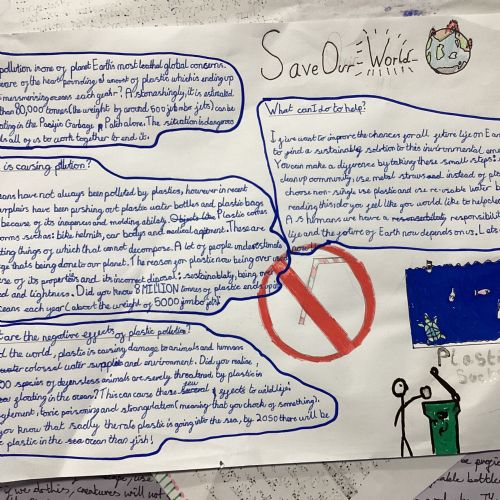 Save Our World
pollution is one of planet Earth's most leathal global concerns.
ware of the heart pounding amount of plastic which is ending up
mesmerising oceans each year? Astonashingly, it is estimated
than 80,000 tonnes (the weight of around 500 jumbo jets) can be
ating in the Pacific Garbage Patch alone. The situation is dangerous
ds all of us to work together to end it.
What can I do to help?
If you want to improve the chances for all future life on E
to find a sustainable solution to this environmental, eme
You can make a difference by taking these small steps:
cleanup community, use metal straws instead of pla
choose non-single use plastic and use re-usable water b
reading this do you feel like you would like to help to
As humans we have a responsibility
life and the future of Earth now depends on us. Let's
now
is causing pllution?
eans have not always been polluted by plastics, however in recent
have been pushing out plastic water bottles and plastic bags
because of its inexpensive and molding ability. Plastic comes
forms such as: bike helmits, car bodys and medical equitment. These are
ting things of which that cannot decompose. A lot of people understimate
ge that's being done to our planet. The reason for plastic now being over used
se of its properties and its incorrect disposal: sustainablaty, being
ed and lightness. Did you know 8 MILLION tonnes of plastic ends up
oceans each year (about the weight of 5000 jumbo jets)
t are the negative effects of plastic pollution?
d the world, plastic is causing damage to animals and humans
water supplies and environment. Did you realise,
00 species of defensless animals are serely threatened by plastic in
floating in the ocean? This can cause these few effects to wildlife:
nglement, toxic poisoning and strangulation (meaning that you choke of something).
you know that sadly the rate plastic is going into the sea, by 2050 there will be
e plastic in the sea ocean than fish!
Plast
So
we do this, creatures will not
able bottle